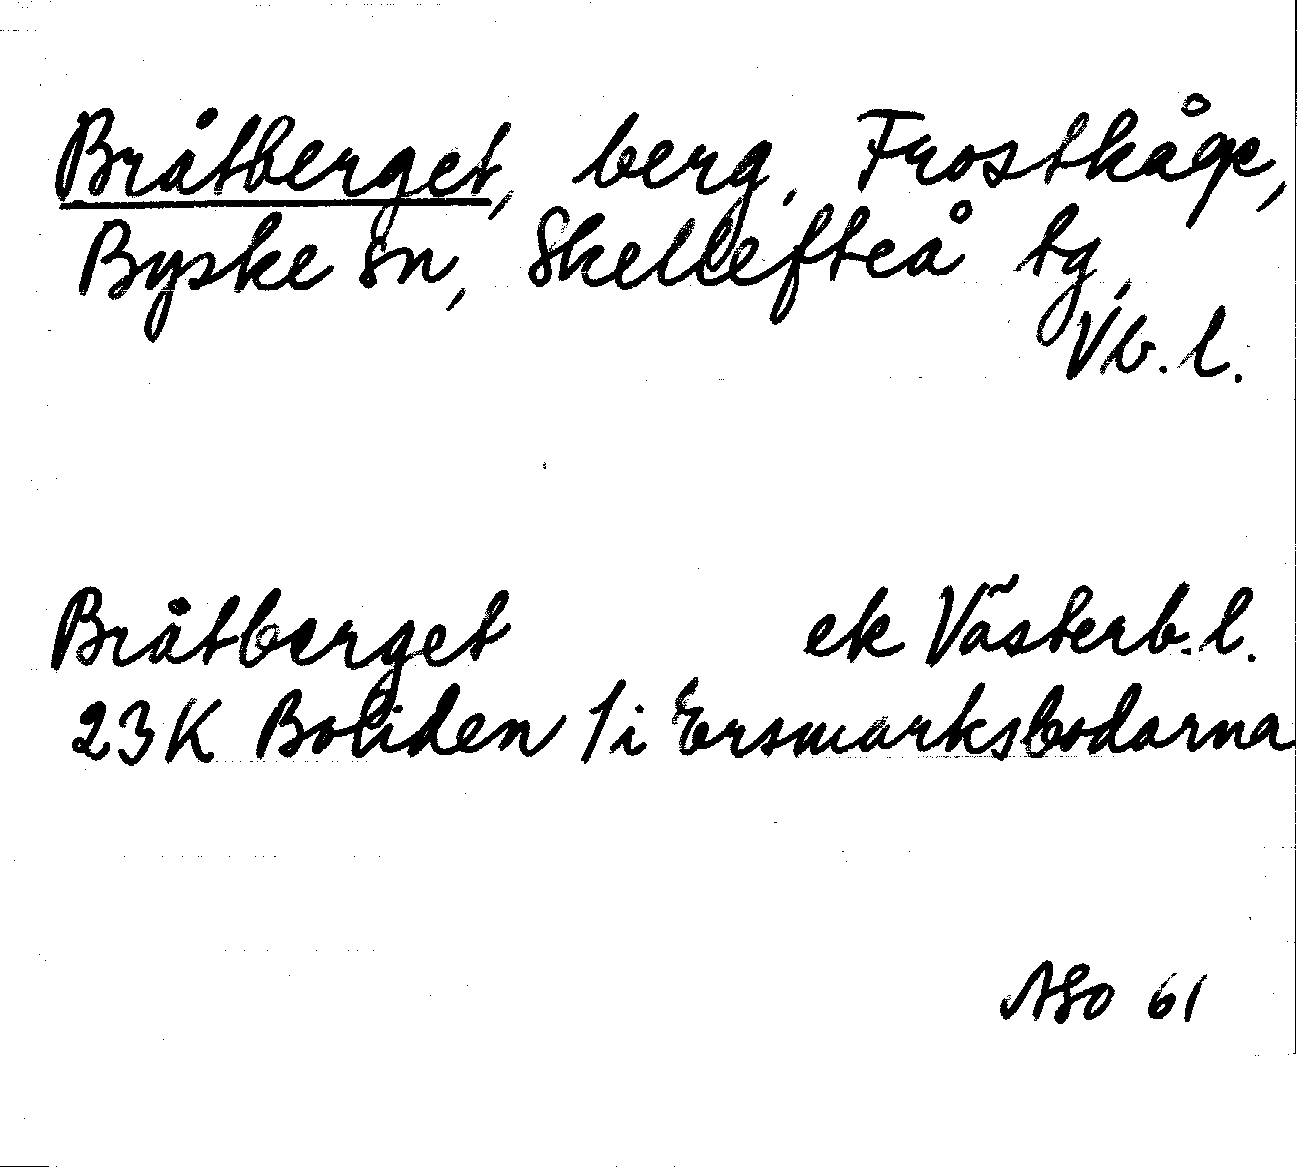 Bråtberget, berg, Frostkåge,
Byske sn, Skellefteå tg,
Vb. l.
Bråtberget ek Västerb. l.
23K Boliden 1i Ersmarksbodarna
ASO 61